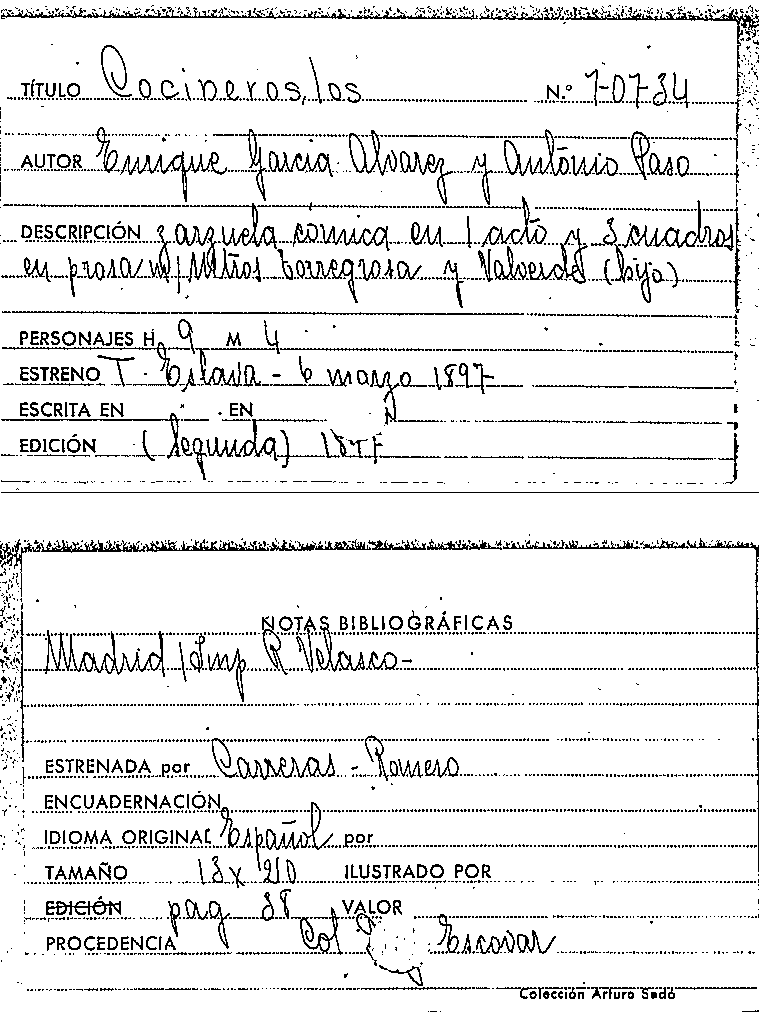 TÍTULO Cocineros, los N.º 7-07-34
AUTOR Enrique Garcia Alvarez y António Paso
DESCRIPCIÓN zarzuela cómica en 1 acto y 3 cuadros
en prosa m/ Mtros Torregrosa y Valverde (hijo)
PERSONAJES H. 9 M 4
ESTRENO T. Eslava - 6 marzo 1897
ESCRITA EN EN
EDICIÓN (Segunda)
NOTAS BIBLIOGRÁFICAS
Madrid / Imp R Velasco-
ESTRENADA por Carreras - Romero
ENCUADERNACIÓN
IDIOMA ORIGINAL Español por
TAMAÑO 13 x 20 ILUSTRADO POR
EDICIÓN pag 38 VALOR
PROCEDENCIA Col Escovar
Colección Arturo Sedó